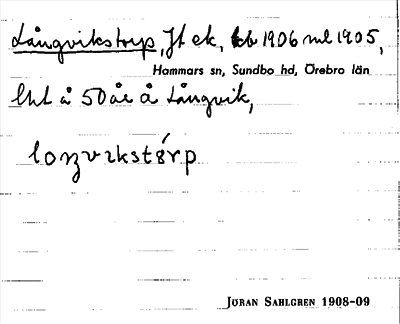 Långvikstorp, Jt ek, kb 1906 ml 1905,
Hammars sn, Sundbo hd, Örebro län
Utt å 50 år å Långvik,
loŋvıkstɵ́rp
JÖRAN SAHLGREN 1908-09